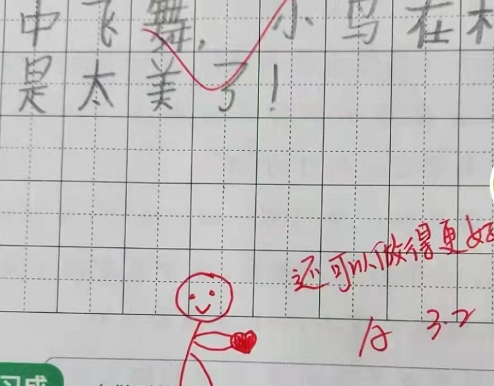 中飞舞，小鸟在
是太美了！
还可以做得更好
A 3.2
习成